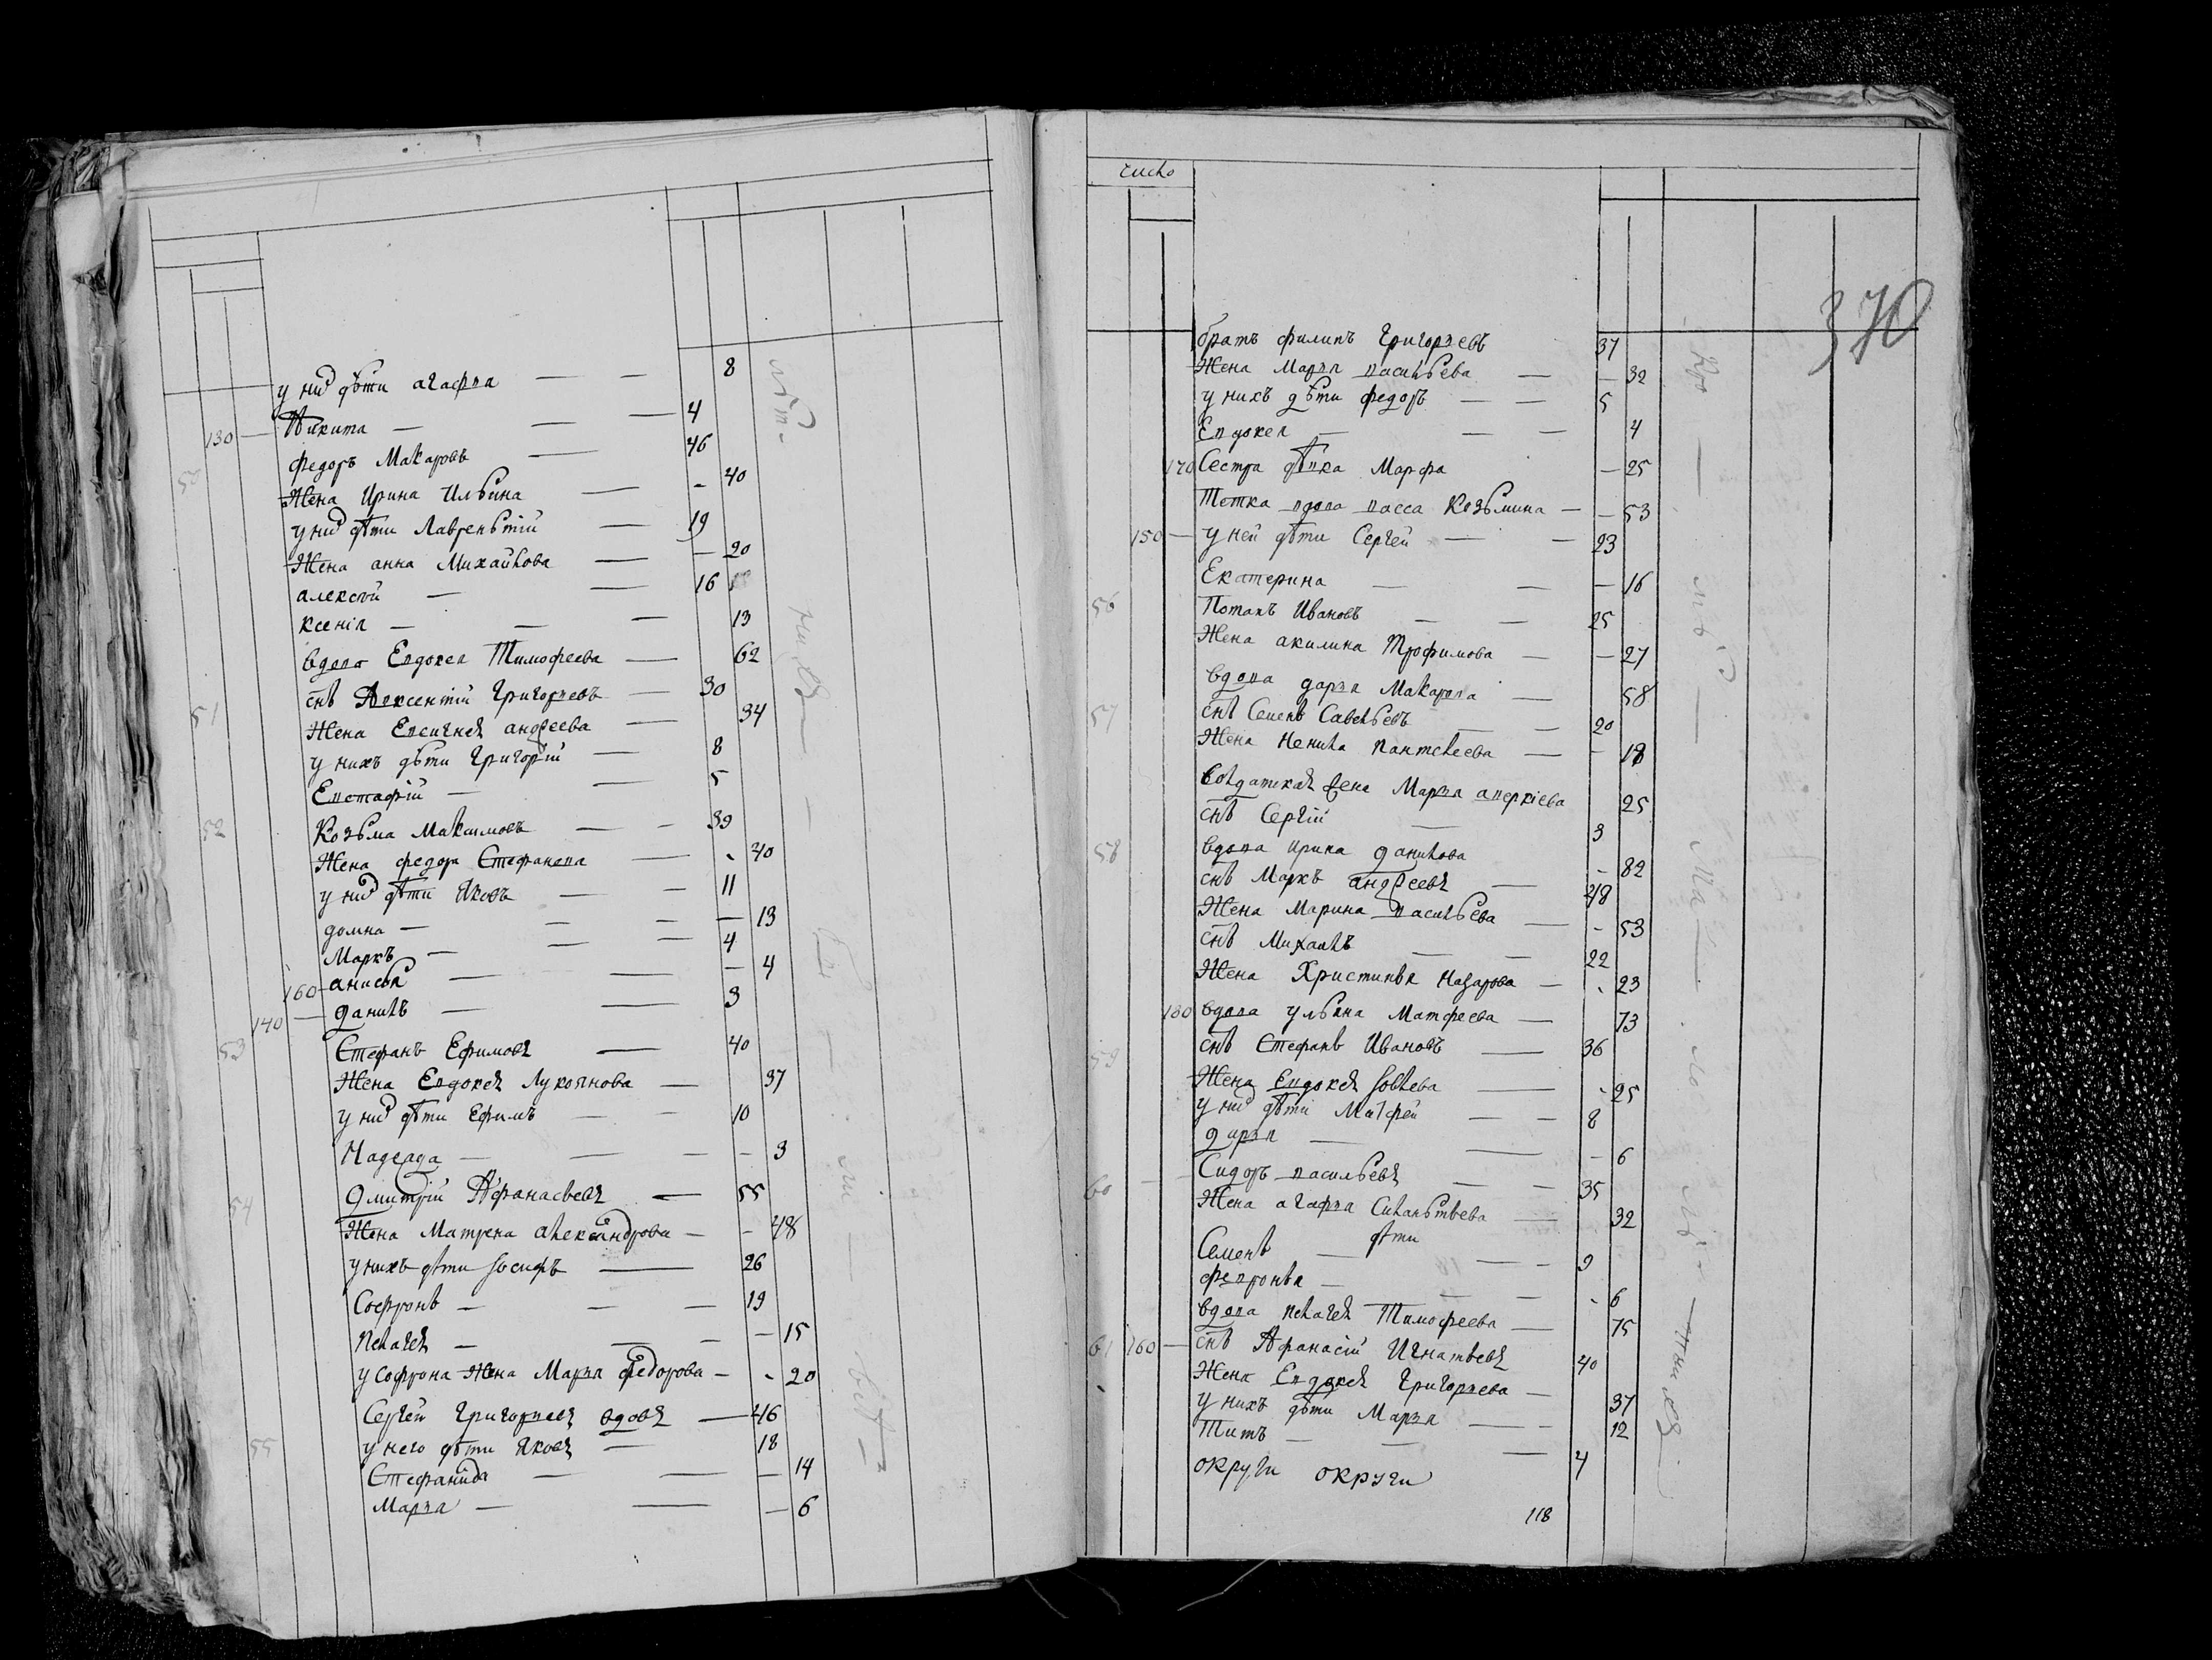 у них дѣти агафья — — 8
130 — Никита — — — 4
50 федоръ Макаровъ — 46
Жена Ирина Ильвина — - 40
у них дѣти Лаврентѣй — 19
Жена анна Михайлова — — 20
алексѣй — — 16
ксенія — — — 13
вдова Евдокея Тимофеева — 62
51 снъ Авксентий Григорьевъ — 30
Жена Евгенея андреева — 34
у нихъ дѣти Григорій — 8
Евстафій — — 5
52 Козьма Максимовъ — - 39
Жена федора Стефанова — - 40
у них дѣти Яковъ — - 11
домна — — — — 13
Маркъ — — — 4
160 анисья — — — 4
140 — данилъ — — 3
53 Стефанъ Ефимовъ — 40
Жена Евдокея Лукоянова — 37
у них дѣти Ефимъ — — 10
Надежда — — — - 3
54 Дмитрій Афанасьевъ — 55
Жена Матрена александрова — - 48
у нихъ дѣти Іосифъ — 26
Софронъ — — — 19
Пелагея — — — — 15
у Софрона Жена Марья федорова — - 20
55 Сергей Григорьевъ вдовъ — 46
у него дѣти Яковъ — 18
Стефанида — — — 14
Марья — — — 6
число
370
братъ филипъ Григорьевъ 37
Жена Марья васильева — — 32
у нихъ дѣти федоръ — — 5
Евдокея — — — 4
170 Сестра дѣвка Марфа — 25
Тетка вдова васса Козьмина — — 53
150 — у ней дѣти Сергей — — 23
Екатерина — — — 16
56 Потапъ Ивановъ — — 25
Жена акилина Трофимова — — 27
вдова дарья Макарова — 58
57 снъ Семенъ Савельевъ — — 20
Жена Ненила Пантелеева — - 18
Солдатская жена Марья аверкіева 25
снъ Сергій — 3
58 вдова Ирина данилова - 82
снъ Маркъ андреевъ — 48
Жена Марина васильева — - 53
снъ Михаилъ — — 22
Жена Христинья Назарова — - 23
180 вдова ульяна Матфеева — 73
59 снъ Стефанъ Ивановъ — 36
Жена Евдокея Іовлева — - 25
у них дѣти Матфей — — 8
дарья — — - 6
60 Сидоръ васильевъ — — 35
Жена агафья Силантьева — 32
дѣти
Семенъ — — — 9
февронья — — — - 6
вдова Пелагея Тимофеева — 75
61 160 — снъ Афанасій Игнатьевъ 40
Жена Евдокея Григорьева — 37
у нихъ дѣти Марья — - 12
Титъ — — — 4
округи округи
118